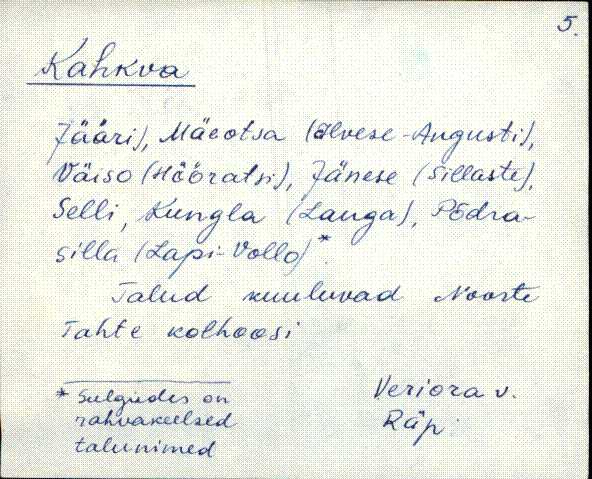 5.
Kahkva
Jääri), Mäeotsa (Ilvese-Augusti),
Väiso (Hööratsi), Jänese (Sillaste),
Selli, Kungla (Lauga), Põdra-
silla (Lapi-Vollo)*.
Talud kuuluvad Noorte
Tahte kolhoosi
* Sulgudes on
rahvakeelsed
talunimed
Veriora v.
Räp